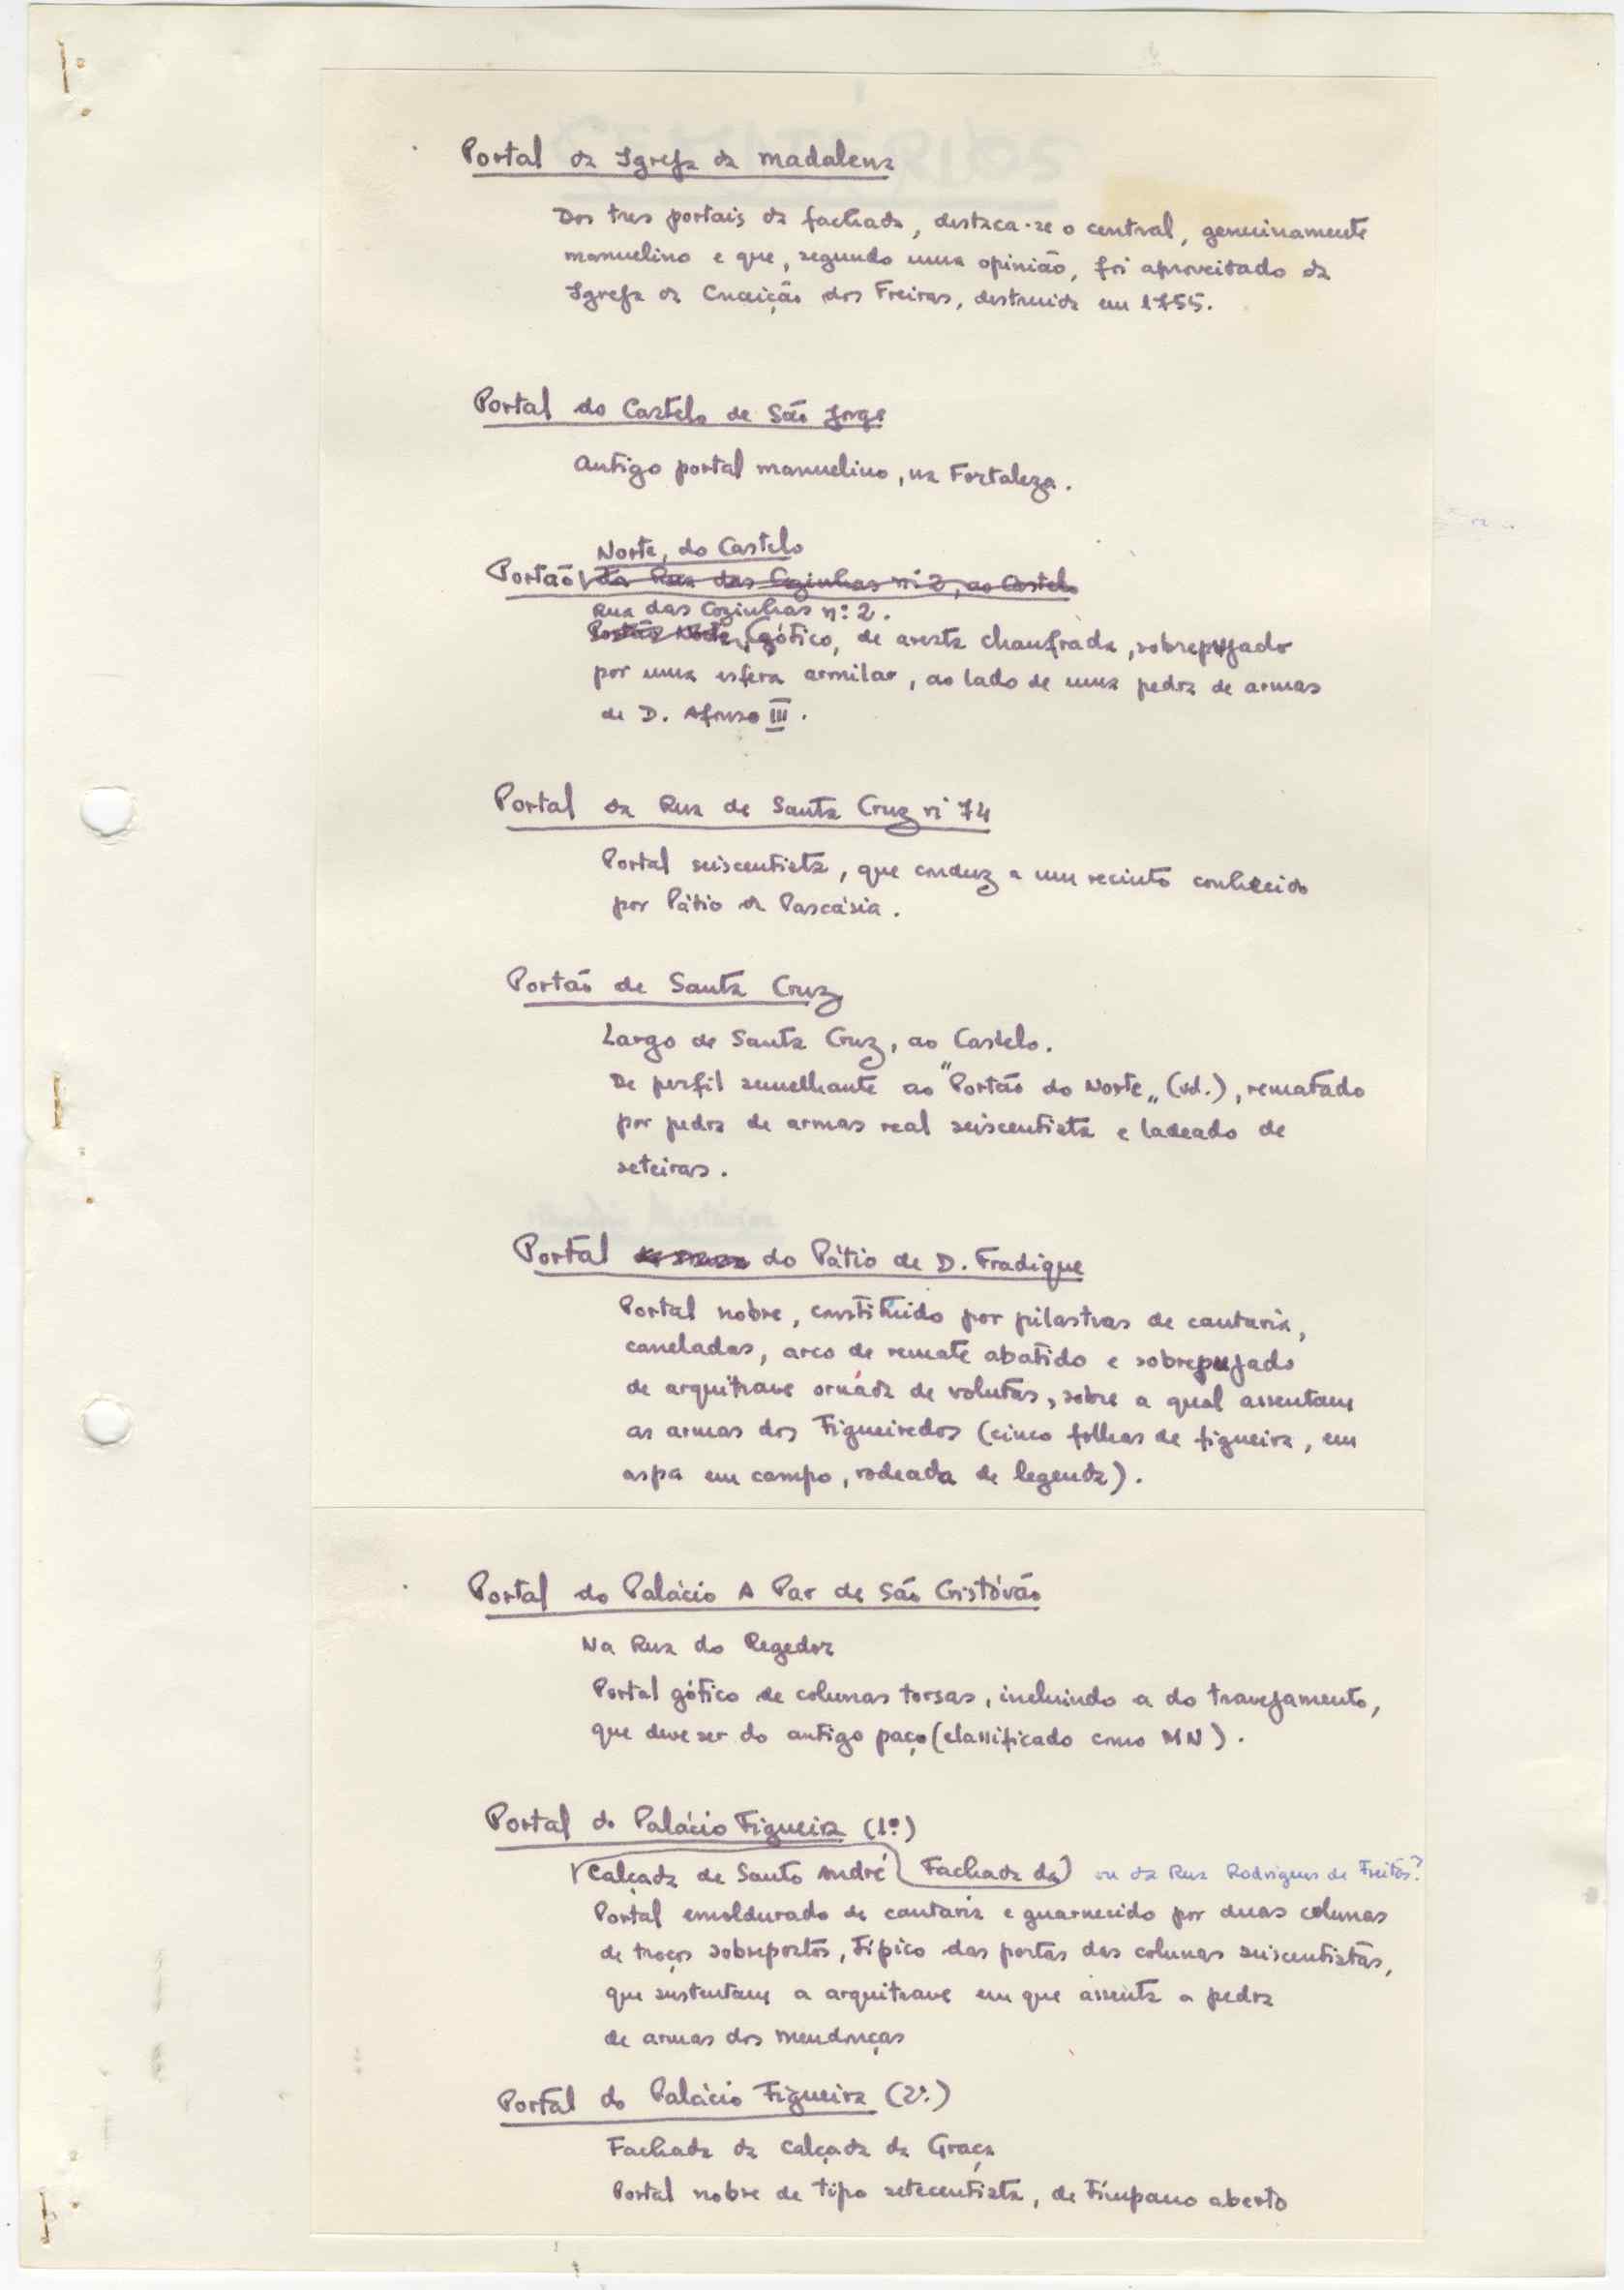 Portal da Igreja da Madalena
Dos tres portais da fachada, destaca-se o central, genuinamente
manuelino e que, segundo uma opinião, foi aproveitado da
Igreja da Conceição dos Freiras, destruida em 1755.
Portal do Castelo de São Jorge
Antigo portal manuelino, na Fortaleza.
Norte, do Castelo
Portão da Rua das Cozinhas nº 2, ao Castelo
Rua das Cozinhas nº 2.
Portão Norte, gótico, de aresta chanfrada, sobrepujado
por uma esfera armilar, ao lado de uma pedra de armas
de D. Afonso III.
Portal da Rua de Santa Cruz nº 74
Portal seiscentista, que conduz a um recinto conhecido
por Pátio da Pascásia.
Portão de Santa Cruz
Largo de Santa Cruz, ao Castelo.
De perfil semelhante ao "Portão do Norte" (vd.), rematado
por pedra de armas real seiscentista e ladeado de
seteiras.
Portal do Pátio de D. Fradique
Portal nobre, constituido por pilastras de cantaria,
caneladas, arco de remate abatido e sobrepujado
de arquitrave ornada de volutas, sobre a qual assentam
as armas dos Figueiredos (cinco folhas de figueira, em
aspa em campo, rodeada de legenda).
Portal do Palácio A Par de São Cristóvão
Na Rua do Regedor
Portal gótico de colunas torsas, incluindo a do travejamento,
que deve ser do antigo paço (classificado como MN).
Portal do Palácio Figueira (1º)
(Calçada de Santo André (Fachada da) ou da Rua Rodrigues de Freitas?
Portal emoldurado de cantaria e guarnecido por duas colunas
de troços sobrepostos, típico das portas das colunas seiscentistas,
que sustentam a arquitrave em que assenta a pedra
de armas dos Mendonças
Portal do Palácio Figueira (2º.)
Fachada da Calçada da Graça
Portal nobre de tipo setecentista, de tímpano aberto